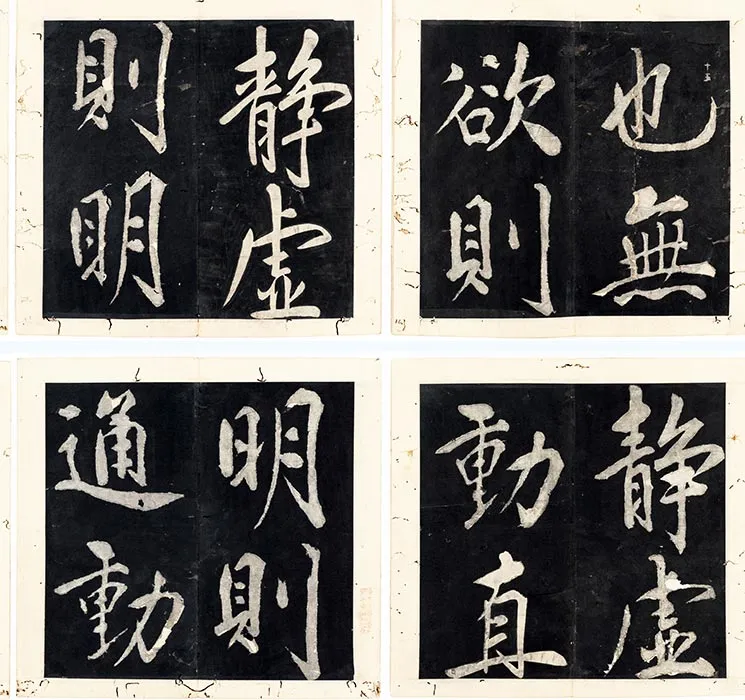 十五
也無
欲則
静虛
動直
静虛
則明
明則
通動